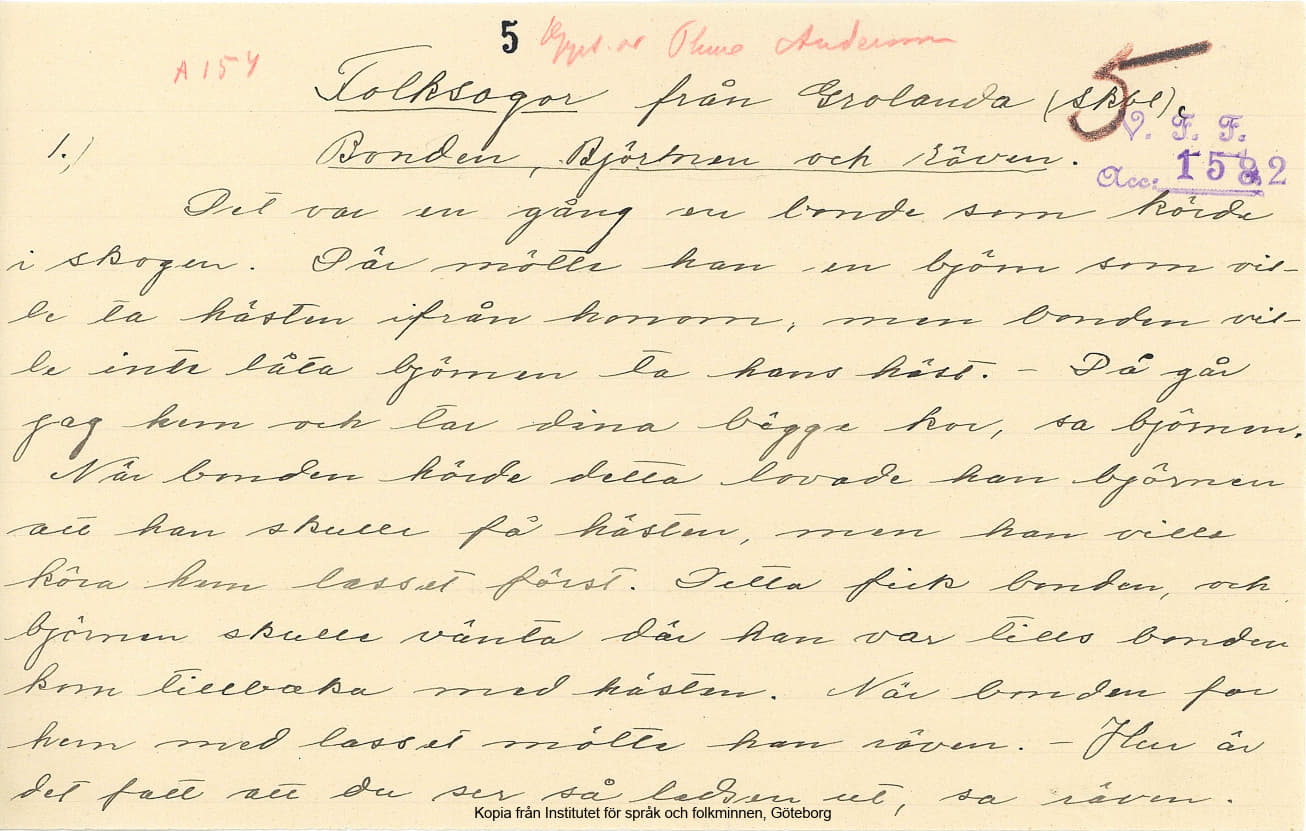 5 Uppt. av Thure Andersson
A 154
5
Folksagor från Grolanda (Skbl).
V. F. F.
Acc: 1582
1.) Bonden, Björnen och räven.
Det var en gång en bonde som körde
i skogen. Där mötte han en björn som vil-
le ta hästen ifrån honom, men bonden vil-
le inte låta björnen ta hans häst. – Då går
jag hem och tar dina bägge kor, sa björnen.
När bonden hörde detta lovade han björnen
att han skulle få hästen, men han ville
köra hem lasset först. Detta fick bonden, och
björnen skulle vänta där han var tills bonden
kom tillbaka med hästen. När bonden for
hem med lasset mötte han räven. – Hur är
det fatt att du ser så ledsen ut, sa räven.
Kopia från Institutet för språk och folkminnen, Göteborg